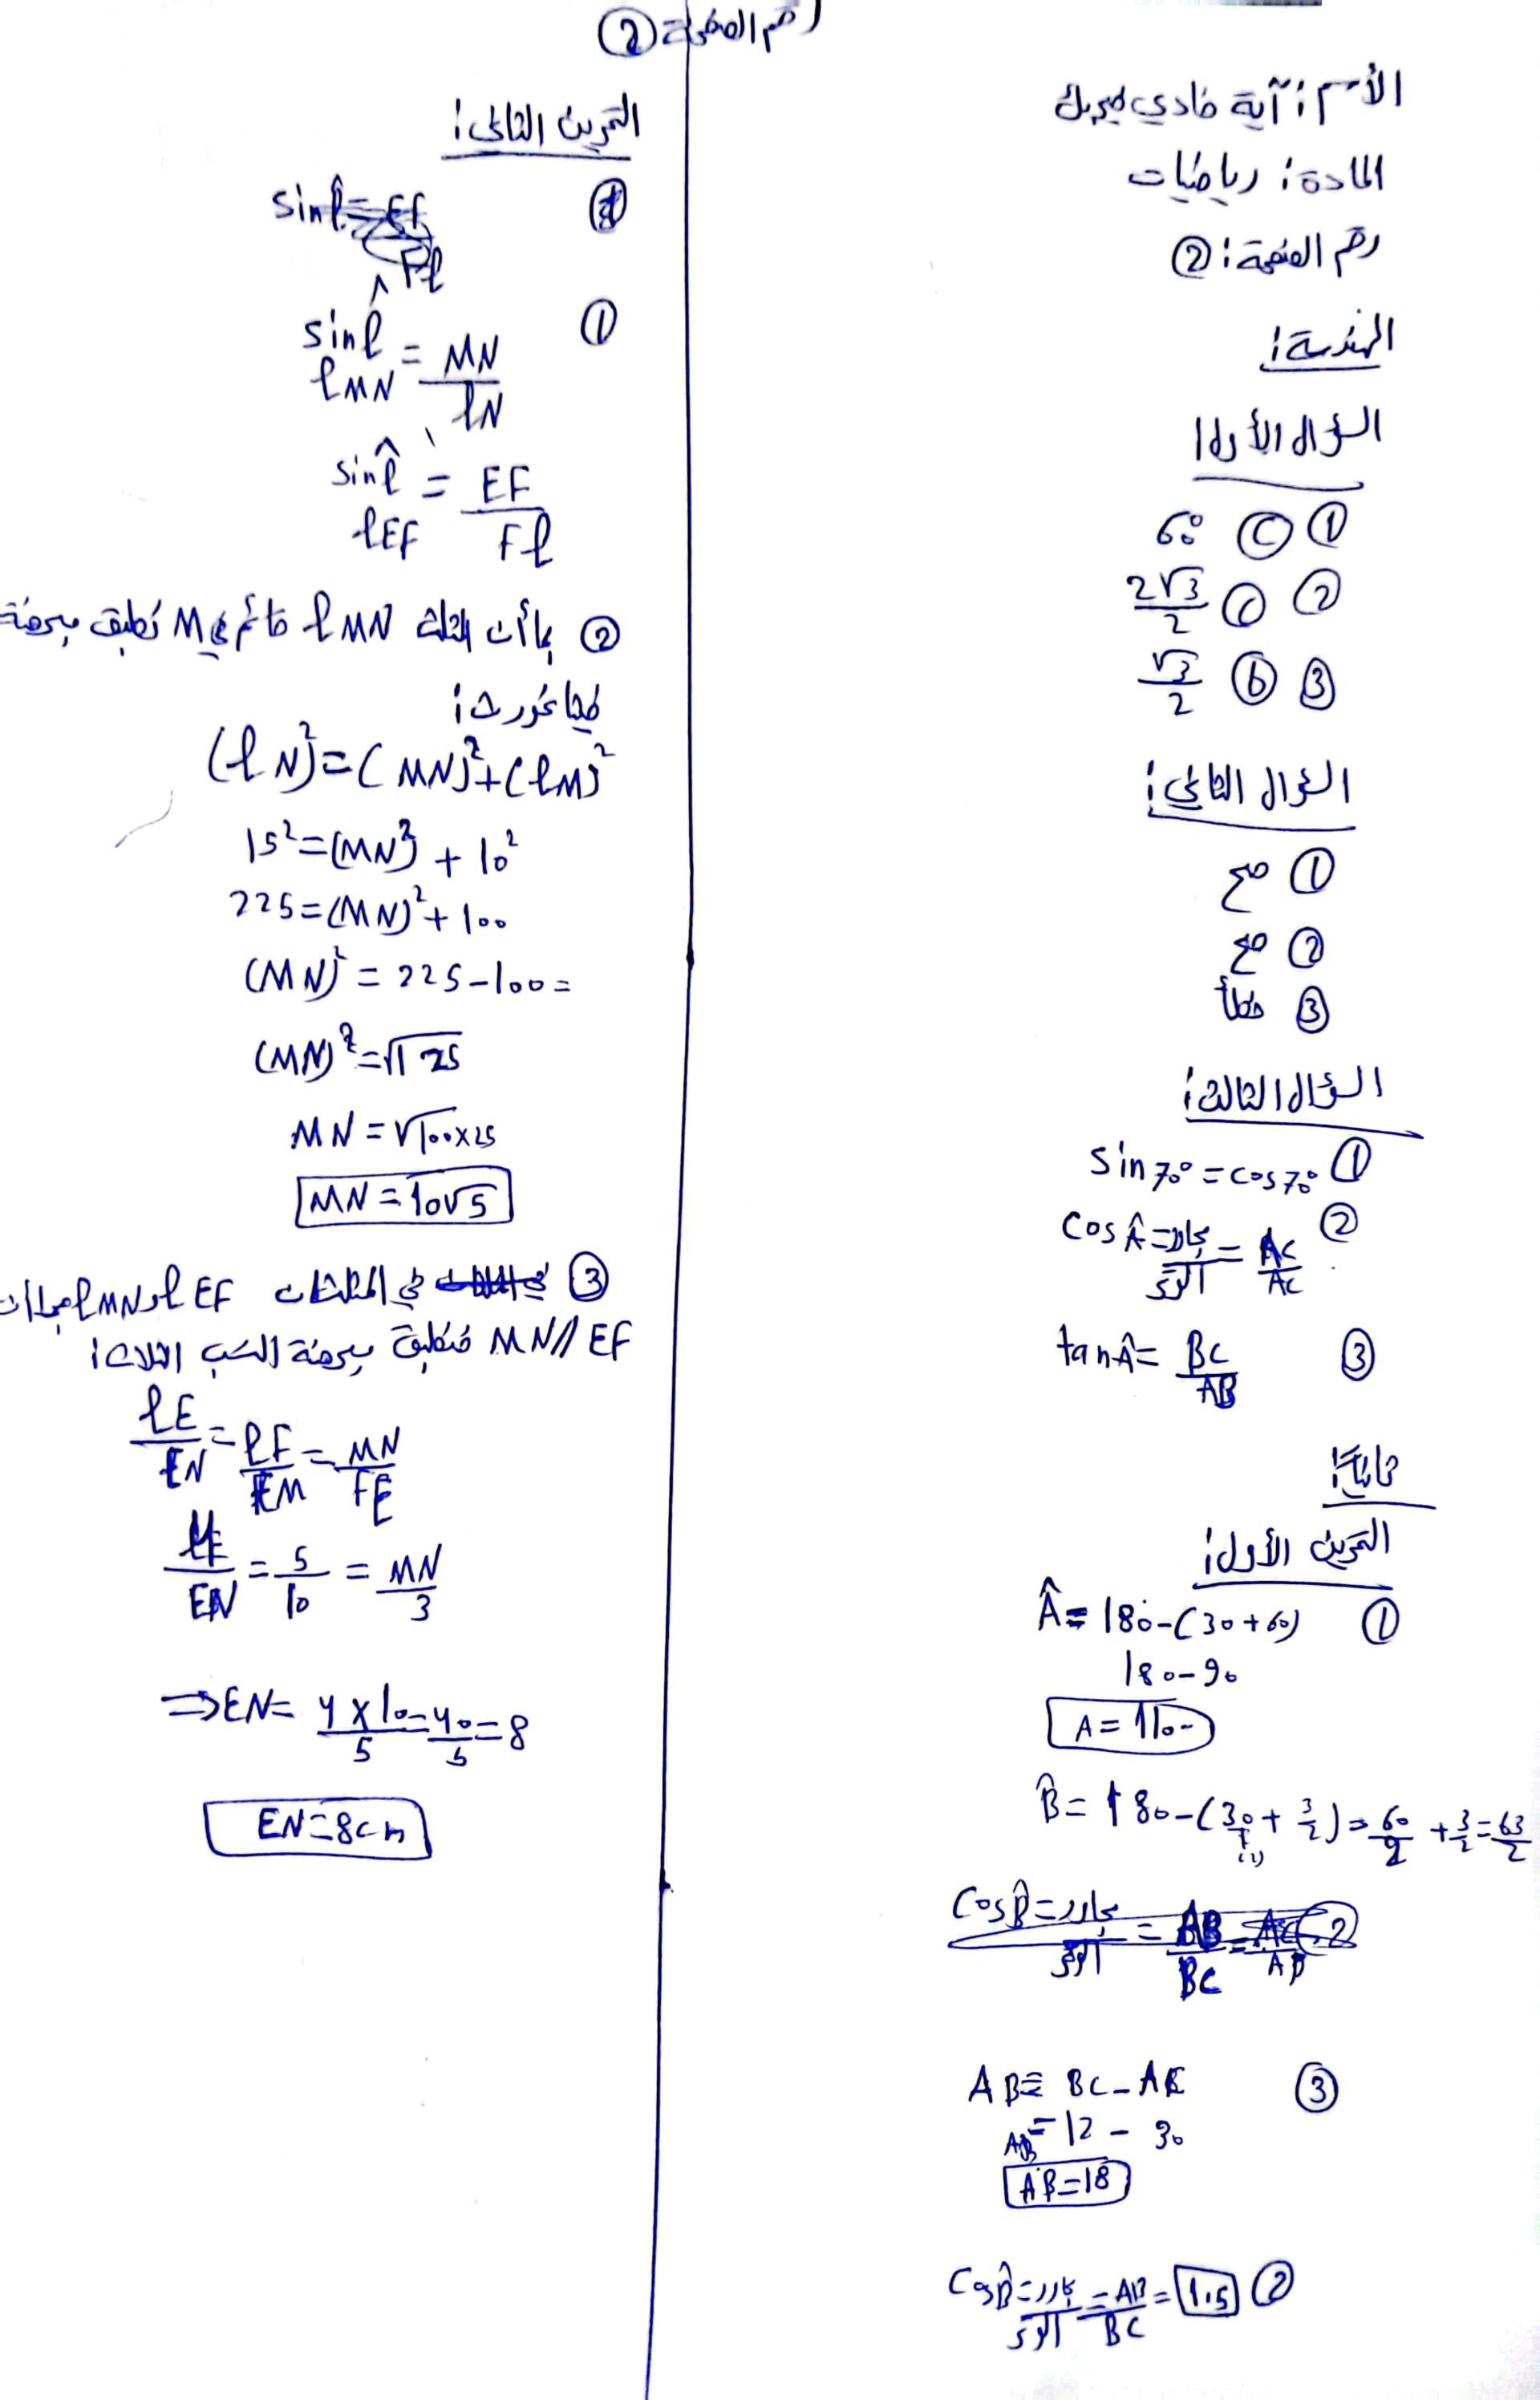 الأسم: آية فادي
المادة: رياضيات
رقم الصفحة: ②
الهندسة:
السؤال الأول:
① C 60°
② C 2√3/2
③ b √3/2
السؤال الثاني:
① صح
② صح
③ خطأ
السؤال الثالث:
① sin70° = cos70°
② cosÂ = مجاور/الوتر = AC/AC
③ tanÂ = BC/AB
ثانياً:
التمرين الأول:
① Â = 180 - (30 + 60)
180 - 90
A = 110
B̂ = 180 - (30/1 + 3/2) ⇒ 60/2 + 3/2 = 63/2
(2)
cosB̂ = مجاور/الوتر = AB/BC
③ AB = BC - AC
AB = 12 - 30
AB = 18
② cosB̂ = مجاور/الوتر = AB/BC = 1.5
رقم الصفحة ②
التمرين الثاني:
① sinl̂ lMN = MN/lN
sinl̂ lEF = EF/Fl
② بما أن المثلث lMN قائم في M نطبق مبرهنة
فيثاغورث:
(lN)² = (MN)² + (lM)²
15² = (MN)² + 10²
225 = (MN)² + 100
(MN)² = 225 - 100 =
(MN)² = √125
MN = √100×25
MN = 10√5
③ في المثلثات lEF و lMN
MN // EF فنطبق مبرهنة النسب الثلاث:
lE/EN = lF/FM = MN/FE
lE/EN = 5/10 = MN/3
⇒ EN = 4×10/5 = 40/5 = 8
EN = 8cm